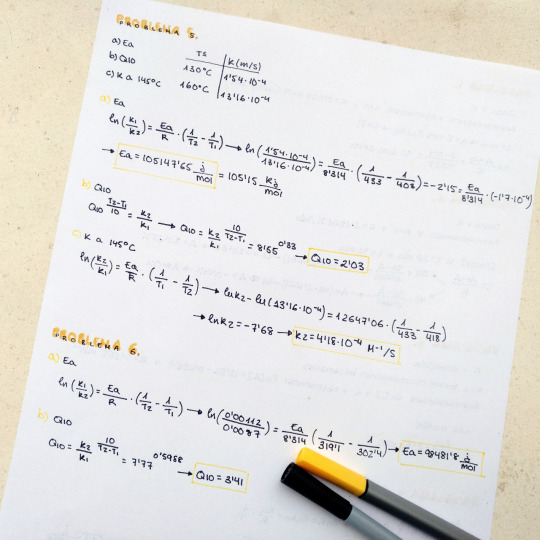 PROBLEMA 5.
a) Ea
b) Q10
c) K a 145°C
TS K (m/s)
130°C 1'54·10⁻⁴
160°C 13'16·10⁻⁴
a) Ea
ln(K1/K2) = Ea/R · (1/T2 - 1/T1) → ln(1'54·10⁻⁴/13'16·10⁻⁴) = Ea/8'314 · (1/433 - 1/403) = -2'15 = Ea/8'314 · (-1'7·10⁻⁴)
→ Ea = 105147'65 J/mol = 105'15 KJ/mol
b) Q10
Q10^(T2-T1/10) = K2/K1 → Q10 = K2/K1^(10/T2-T1) = 8'55^0'33 → Q10 = 2'03
c) K a 145°C
ln(K2/K1) = Ea/R · (1/T1 - 1/T2) → lnK2 - ln(13'16·10⁻⁴) = 12647'06 · (1/433 - 1/418)
→ lnK2 = -7'68 → K2 = 4'18·10⁻⁴ M⁻¹/S
PROBLEMA 6.
a) Ea
ln(K1/K2) = Ea/R · (1/T2 - 1/T1) → ln(0'00112/0'0087) = Ea/8'314 (1/319'1 - 1/302'4) → Ea = 98481'8 J/mol
b) Q10
Q10 = K2/K1^(10/T2-T1) = 7'77^0'5988 → Q10 = 3'41